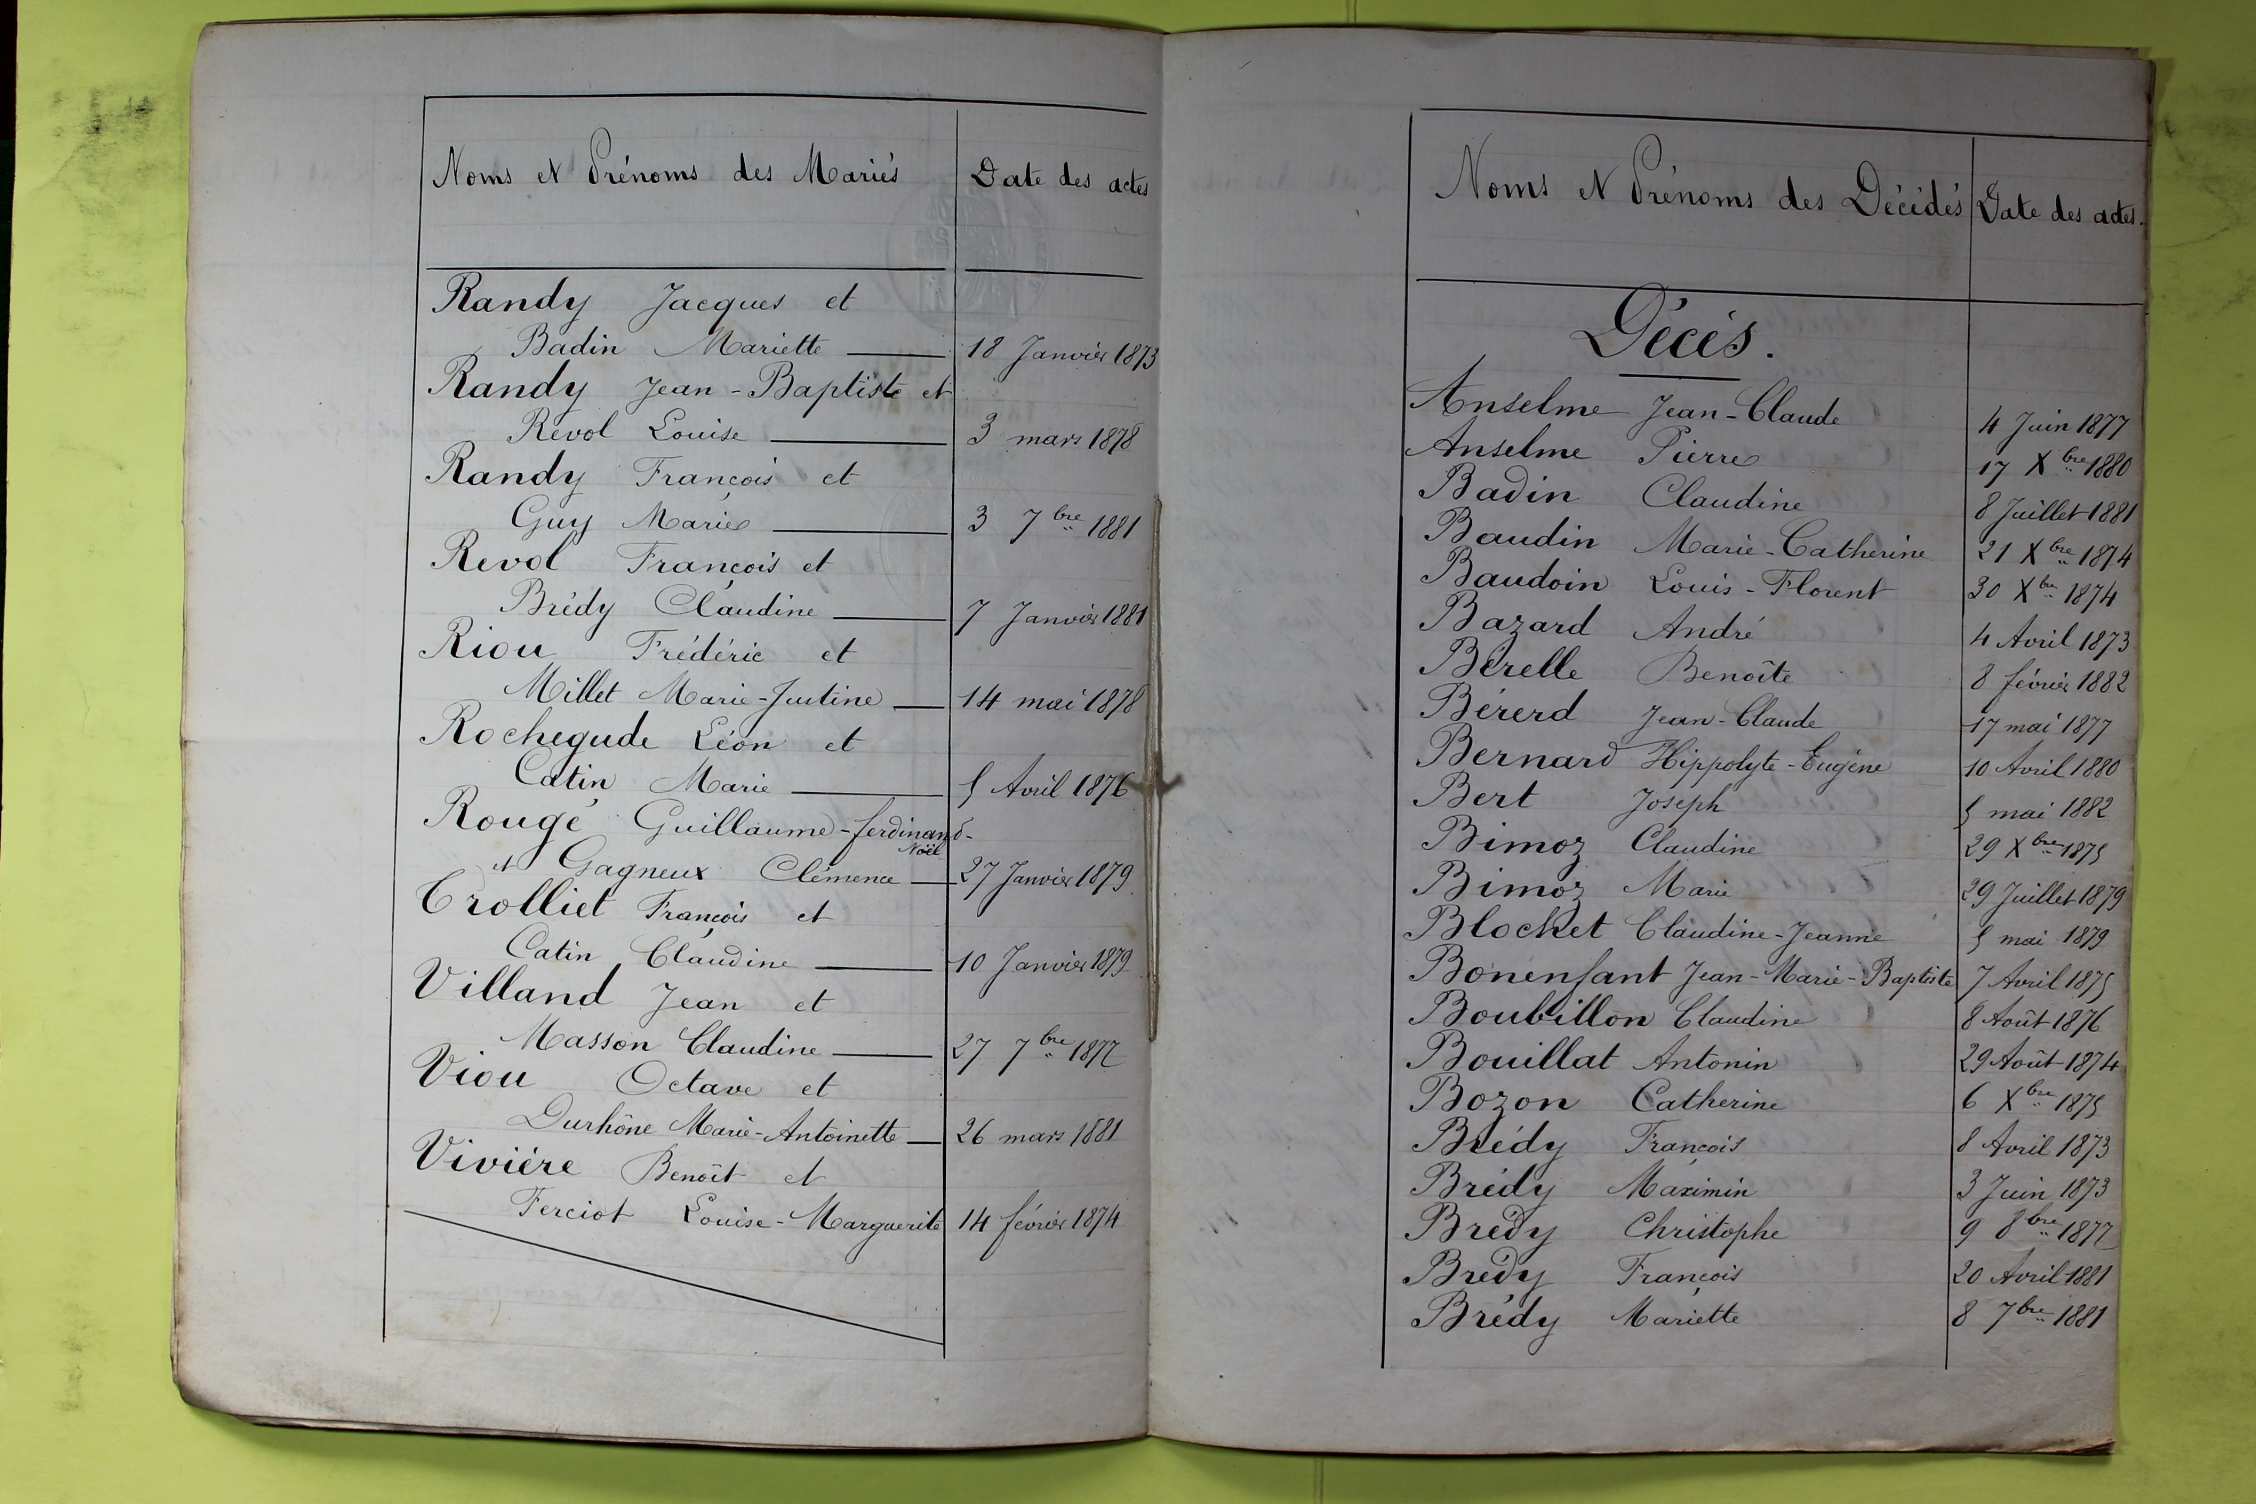 Noms et Prénoms des Mariés Date des actes
Randy Jacques et
Badin Mariette 18 Janvier 1873
Randy Jean-Baptiste et
Revol Louise 3 mars 1878
Randy François et
Guy Marie 3 7bre 1881
Revol François et
Brédy Claudine 7 Janvier 1881
Riou Frédéric et
Millet Marie-Justine 14 mai 1878
Rochegude Léon et
Catin Marie 5 Avril 1876
Rougé Guillaume-ferdinand-
Noël
et Gagneux Clémence 27 Janvier 1879
Trolliet François et
Catin Claudine 10 Janvier 1879
Villand Jean et
Masson Claudine 27 7bre 1877
Viou Octave et
Durhône Marie-Antoinette 26 mars 1881
Viviére Benoît et
Ferciot Louise-Marguerite 14 février 1874
Noms et Prénoms des Décédés Date des actes.
Décés.
Anselme Jean-Claude 4 Juin 1877
Anselme Pierre 17 Xbre 1880
Badin Claudine 8 Juillet 1881
Baudin Marie-Catherine 21 Xbre 1874
Baudoin Louis-Florent 30 Xbre 1874
Bazard André 4 Avril 1873
Bérelle Benoîte 8 février 1882
Bérerd Jean-Claude 17 mai 1877
Bernard Hippolyte-Eugéne 10 Avril 1880
Bert Joseph 5 mai 1882
Bimoz Claudine 29 Xbre 1875
Bimoz Marie 29 Juillet 1879
Blochet Claudine-Jeanne 5 mai 1879
Bonenfant Jean-Marie-Baptiste 7 Avril 1875
Boubillon Claudine 8 Août 1876
Bouillat Antonin 29 Août 1874
Bozon Catherine 6 Xbre 1875
Brédy François 8 Avril 1873
Brédy Maximin 3 Juin 1873
Brédy Christophe 9 8bre 1877
Brédy François 20 Avril 1881
Brédy Mariette 8 7bre 1881